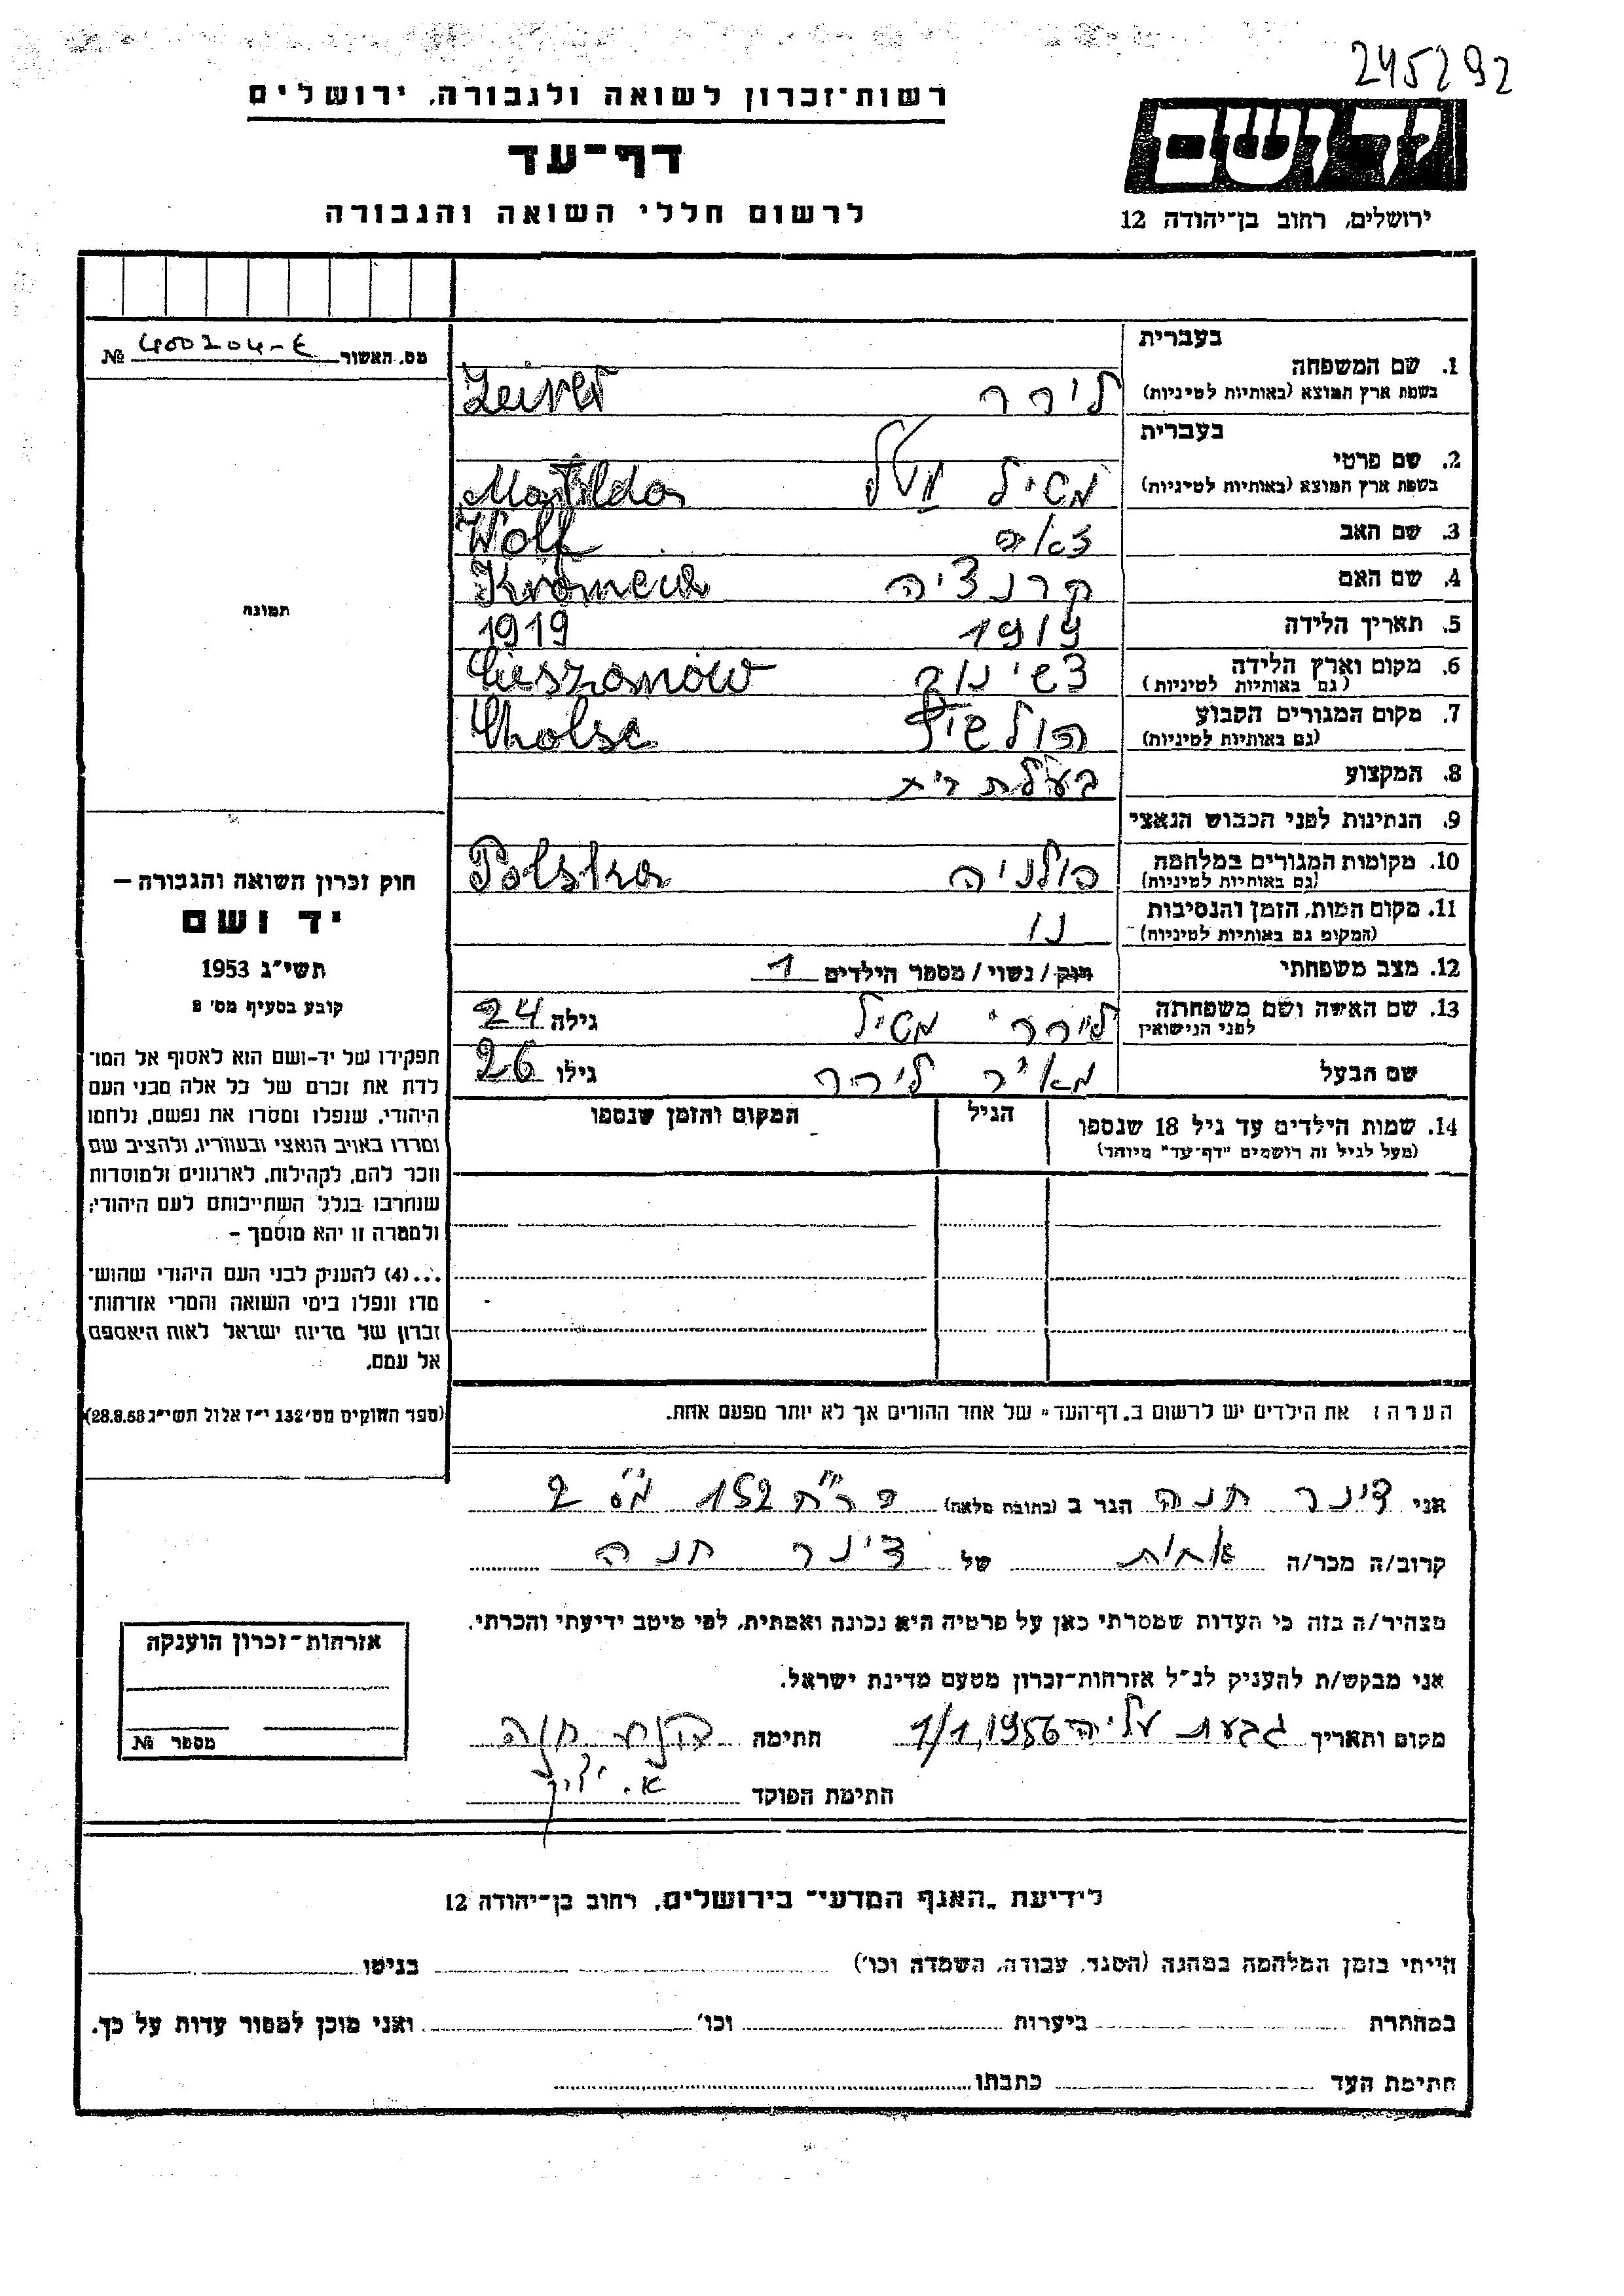 245292
רשות־זכרון לשואה ולגבורה, ירושלים
דף־עד
לרשום חללי השואה והגבורה
יד ושם
ירושלים, רחוב בן־יהודה 12
מס. האשור № 400204-ع
בעברית
1. שם המשפחה
בשפת ארץ המוצא (באותיות לטיניות)
לירר
בעברית
2. שם פרטי
בשפת ארץ המוצא (באותיות לטיניות)
מטיל Matilda
3. שם האב
Wolf
4. שם האם
קרנציה
5. תאריך הלידה 1919 1919
6. מקום וארץ הלידה
(גם באותיות לטיניות)
צשינוב Cieszanów
7. מקום המגורים הקבוע
(גם באותיות לטיניות)
8. המקצוע
בעלת בית
9. הנתינות לפני הכבוש הנאצי
10. מקומות המגורים במלחמה
(גם באותיות לטיניות)
פולניה Polska
11. מקום המות, הזמן והנסיבות
(המקום גם באותיות לטיניות)
12. מצב משפחתי רווק / נשוי / מספר הילדים 1
13. שם האשה ושם משפחתה
לפני הנישואין
מטיל גילה 24
שם הבעל מאיר לירר גילו 26
14. שמות הילדים עד גיל 18 שנספו
(מעל לגיל זה רושמים "דף־עד" מיוחד)
הגיל
המקום והזמן שנספו
תמונה
חוק זכרון השואה והגבורה –
יד ושם
תשי"ג 1953
קובע בסעיף מס' 2
תפקידו של יד-ושם הוא לאסוף אל המו־
לדת את זכרם של כל אלה מבני העם
היהודי, שנפלו ומסרו את נפשם, נלחמו
ומרדו באויב הנאצי ובעוזריו, ולהציב שם
וזכר להם, לקהילות, לארגונים ולמוסדות
שנחרבו בגלל השתייכותם לעם היהודי;
ולמטרה זו יהא מוסמך –
...(4) להעניק לבני העם היהודי שהוש־
מדו ונפלו בימי השואה והמרי אזרחות־
זכרון של מדינת ישראל לאות היאספם
אל עמם.
(ספר החוקים מס' 132 י"ז אלול תשי"ג 28.8.53)
הערה: את הילדים יש לרשום ב„דף־העד" של אחד ההורים אך לא יותר מפעם אחת.
אני צינר חנה הגר ב (כתובת מלאה) 152
קרוב/ה מכר/ה אחות של צינר חנה
מצהיר/ה בזה כי העדות שמסרתי כאן על פרטיה היא נכונה ואמתית, לפי מיטב ידיעתי והכרתי.
אני מבקש/ת להעניק לנ"ל אזרחות־זכרון מטעם מדינת ישראל.
מקום ותאריך גבעת עליה 1/1,1956 חתימה
חתימת הפוקד
אזרחות־זכרון הוענקה
מספר №
לידיעת „האגף המדעי" בירושלים, רחוב בן־יהודה 12
הייתי בזמן המלחמה במחנה (הסגר, עבודה, השמדה וכו') בגיטו
במחתרת ביערות וכו' ואני מוכן למסור עדות על כך.
חתימת העד כתבתו